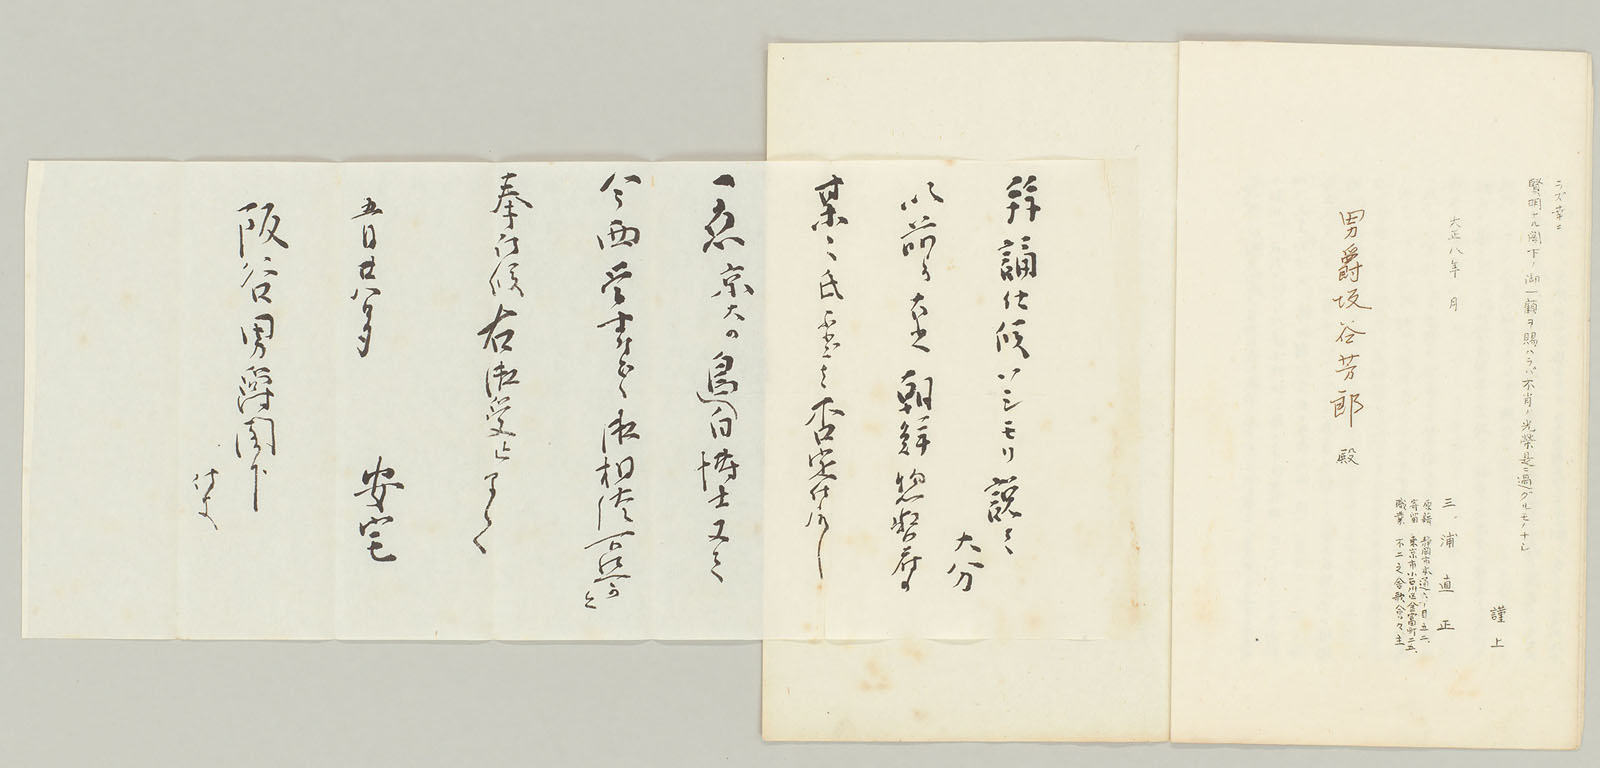 ラズ幸ニ
賢明ナル閣下ノ御一顧ヲ賜ハラバ不肖ノ光榮是ニ過グルモノナシ
謹上
大正八年 月
三浦直正
原籍 静岡市 通六丁目五二、
寄留 東京市小石川区金富町二五、
職業 不二之舎歌会々主
男爵坂谷芳郎殿
拝誦仕候ハシモリ説ハ
大分
以前より 朝鮮総督府の
某々氏 否定仕
一応京大の鳥白博士又ハ
今西 御相談
奉存候右御受迄
五月廿八日夕
安宅
阪谷男爵閣下
侍史